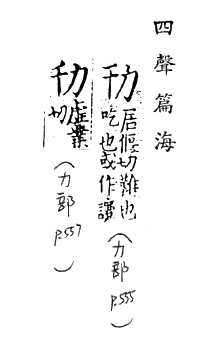 四聲篇海
居偃切難也
吃也或作謇
(力部 p.555)
虛業
切
(力部 p.557)